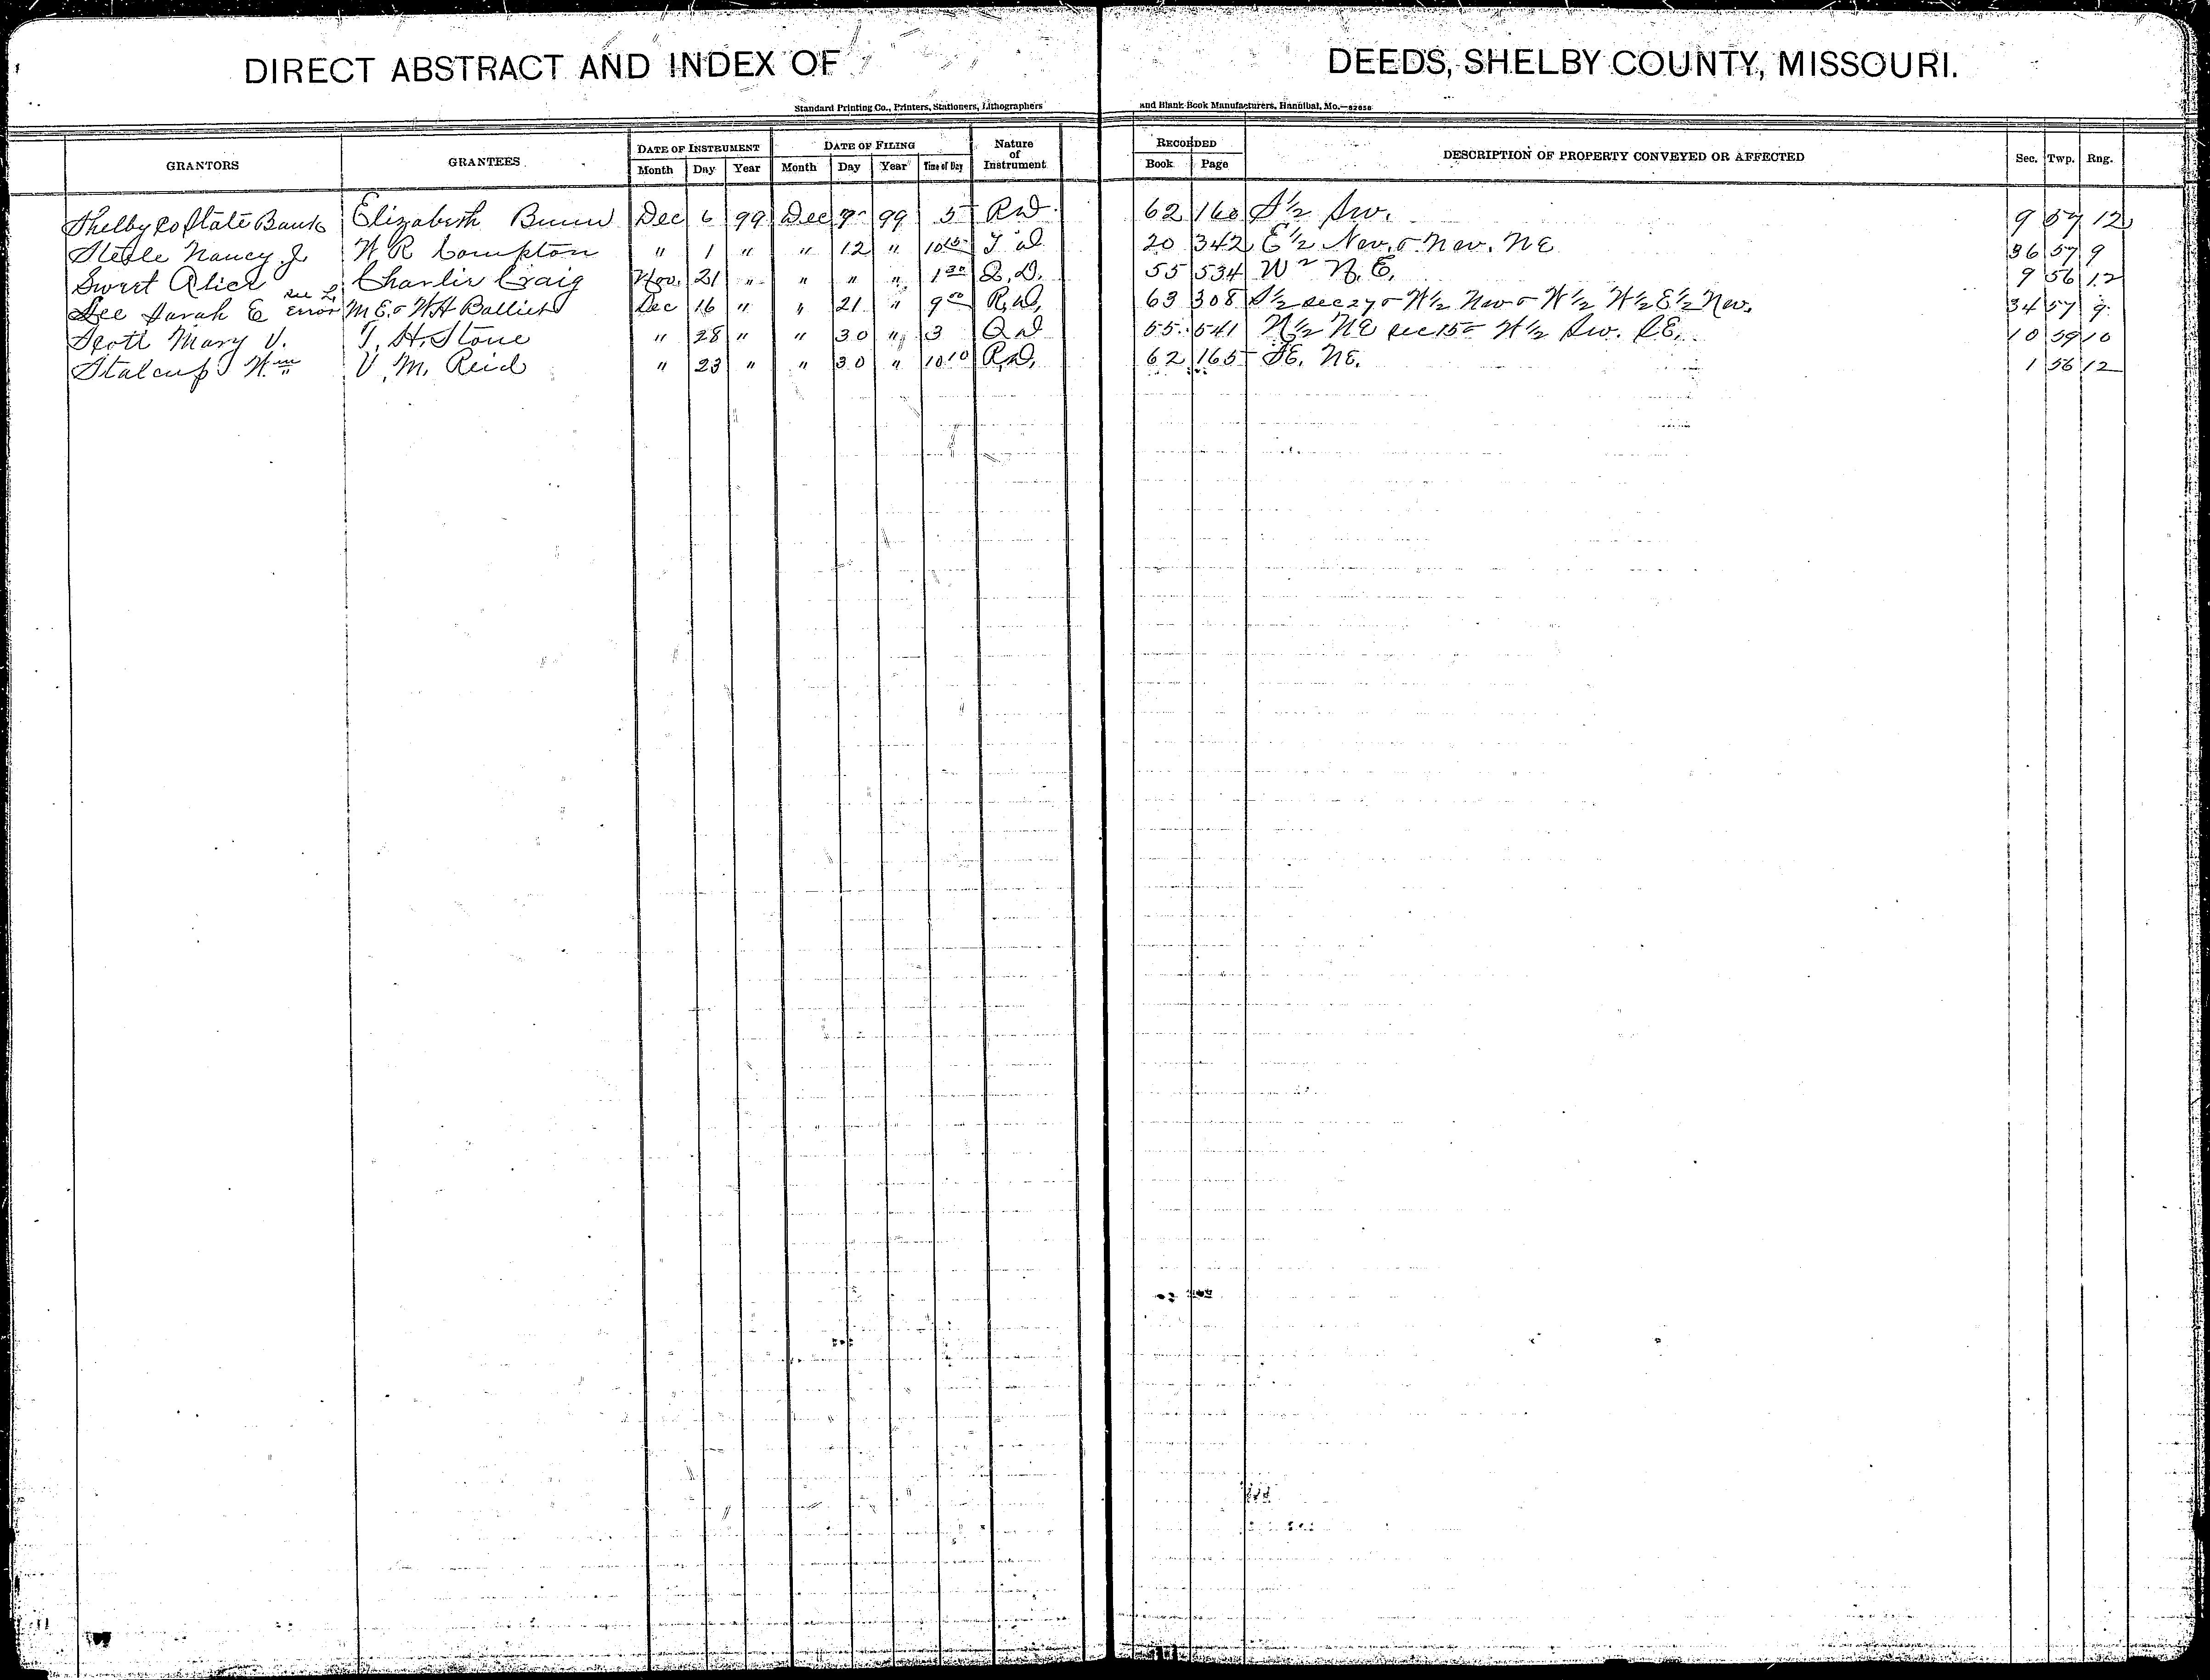 DIRECT ABSTRACT AND INDEX OF DEEDS, SHELBY COUNTY, MISSOURI.
Standard Printing Co., Printers, Stationers, Lithographers and Blank Book Manufacturers, Hannibal, Mo.—82658
GRANTORS GRANTEES DATE OF INSTRUMENT DATE OF FILING Nature of Instrument RECORDED DESCRIPTION OF PROPERTY CONVEYED OR AFFECTED Sec. Twp. Rng.
Month Day Year Month Day Year Time of Day Book Page
Shelby Co State Bank Elizabeth Bunn Dec 6 99 Dec 7 99 5 R W 62 160 S 1/2 Sw. 9 57 12
Steele Nancy J. W R Compton " 1 " " 12 " 10 15 T D 20 342 E 1/2 Nw. & Nw. NE 36 57 9
Swert Alice Charlie Craig Nov. 21 " " " " 1 30 Q. D. 55 534 W 2 N. E. 9 56 12
See Sarah E see L Error M E. & W H Balliet Dec 16 " " 21 " 9 00 R. W. 63 308 S 1/2 sec 27 & W 1/2 Nw & W 1/2 W 1/2 E 1/2 Nw. 34 57 9
Scott Mary V. T. H. Stone " 28 " " 30 " 3 Q D 55 541 N 1/2 NE sec 15 & W 1/2 Sw. SE. 10 59 10
Stalcup Wm V. M. Reid " 23 " " 30 " 10 10 R. D. 62 165 SE. NE. 1 56 12